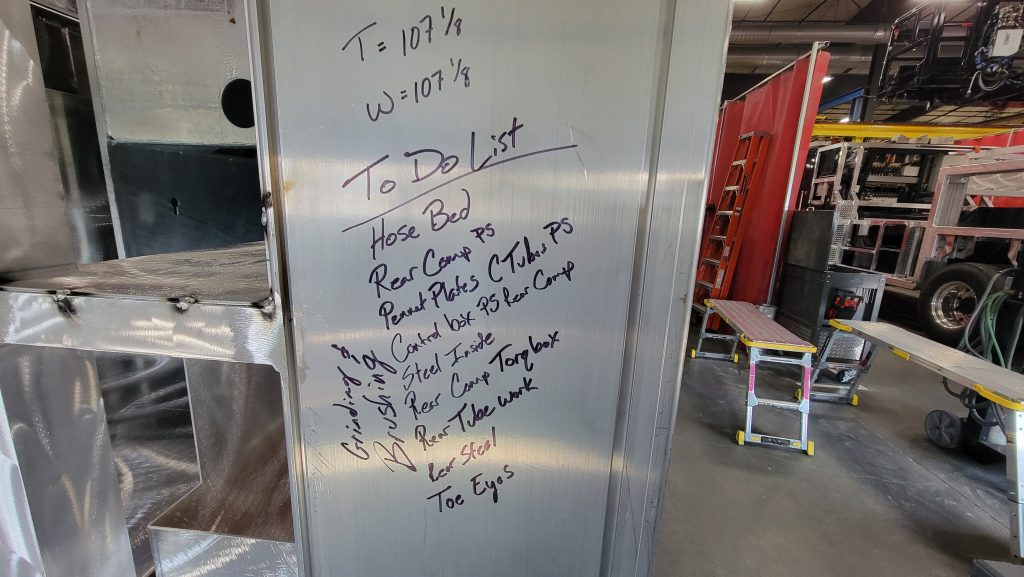 T = 107 1/8
W = 107 1/8
To Do List
Hose Bed
Rear Comp PS
Pennut Plates C Tubes PS
Control box PS Rear Comp
Steel Inside
Rear Comp Torq box
Rear Tube work
Rear Steel
Toe Eyes
Grinding &
Brushing